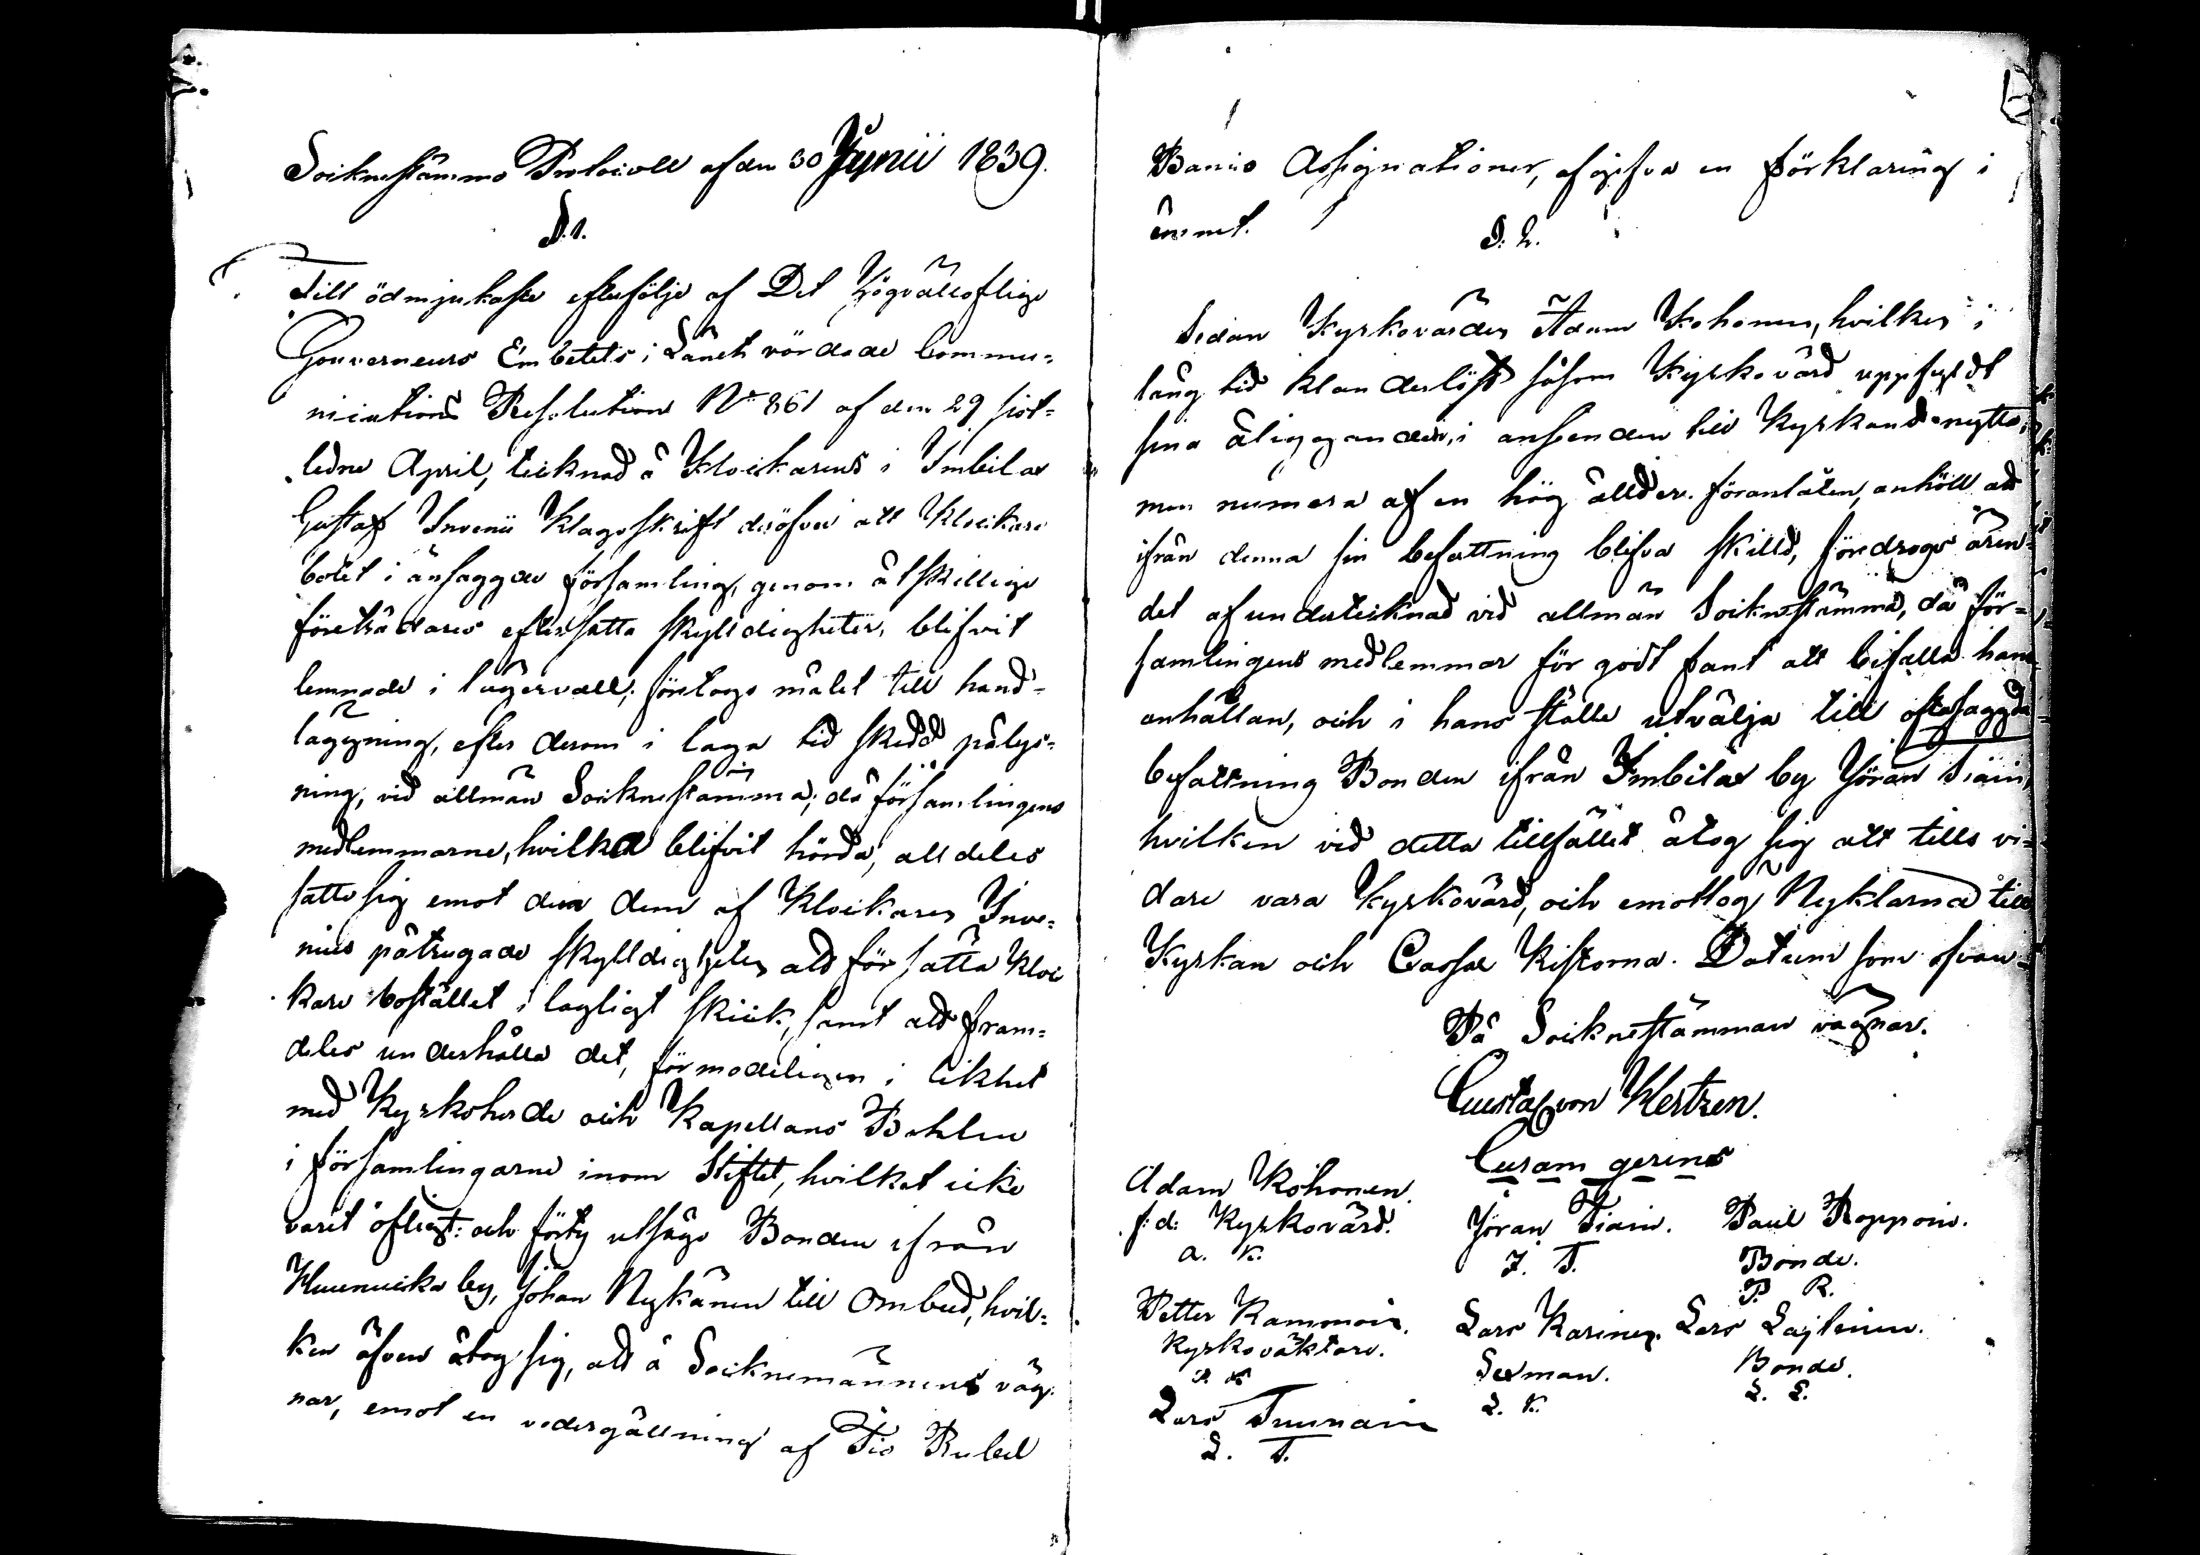 Socknestämmo Protocoll af den 30 Junii 1839.
§.1.
Till ödmjukaste efterfölje af Det Högvälloflige
Gouverneurs Embetets i Länet vördade Commu=
nications Resolution No 861 af den 29 sist=
ledne April, tecknad å Klockarens i Imbilax
Gustaf Invenii Klagoskrift deröfver att Klockare
bolet i ansaggde församling, genom åtskillige
företrädares eftersatta skylldigheter, blifvit
lemnade i lägervall; företogs målet till hand=
läggning, efter derom i laga tid skedd pålys=
ning, vid allmän Sockne stämma; då församlingens
medlemmarne, hvilka blifvit hörda, alldeles
satte sig emot den dem af Klockaren Inve=
nius påtrugade skylldigheten att försätta kloc
kare bostället i lagligt skick, samt att fram=
deles underhålla det, förmodeligen i likhet
med Kyrkoherde och Kapellans Bohlen
i församlingarne inom Stiftet, hvilket icke
varit öfligt: och förty utsågo Bonden ifrån
Huunukka by, Johan Nykänen till Ombud, hvil=
ken äfven åtog sig, att å Socknemännens väg
nar, emot en vedergällning af Tio Rubel
Banco Assignationer, afgifva en förklaring i
ämnet.
§. 2.
Sedan Kyrkovärden Adam Kohonen, hvilken i
lång tid klanderlöst såsom Kyrkovärd uppfyldt
sina åligganden, i anseende till Kyrkans nytta,
men numera af en hög ållder föranlåten, anhöll att
ifrån denna sin befattning blifva skilld, föredrogs ären=
det af undertecknad vid allmän Sockne stämma, då för=
samlingens medlemmar för godt fant att bifalla hans
anhållan, och i hans ställe utvälja till oftasaggda
befattning Bonden ifrån Imbilax by Jöran Tiain,
hvilken vid detta tillfället åtog sig att tills vi=
dare vara Kyrkovärd, och emottog Nyklarna till
Kyrkan och Cassae Kistorna. Datum som ofvan
På Sockne stämman vägnar.
Gustaf von Hertzen.
Curam gerens
Adam Kohonen. Jöran Tiain. Paul Ropponen.
f: d: Kyrkovärd. J. T. Bonde.
A. K. P. R.
Petter Kamonain. Lars Karinen. Lars Lajtinen.
Kyrkoväktare. Sexman. Bonde.
P. K. L. K. L. L.
Lars Tuunain
L. T.